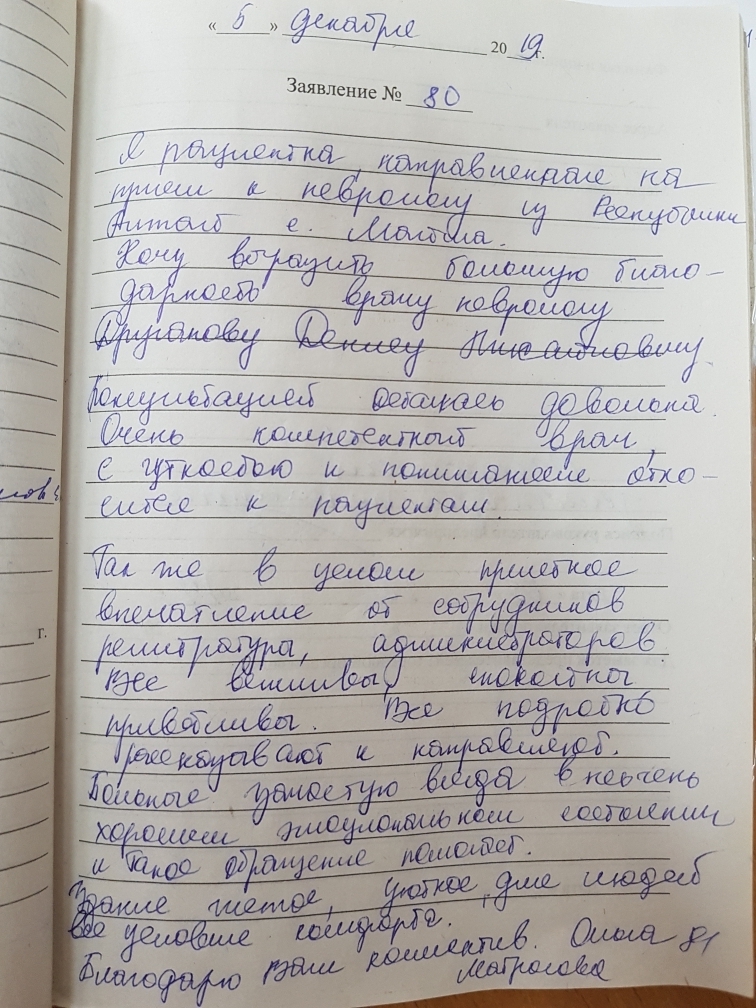 « 5 » декабря 2019 г.
Заявление № 80
Я пациентка, направленная на
прием к неврологу из Республики
Алтай с. Майма.
Хочу выразить большую благо-
дарность врачу неврологу
Друганову Денису
Консультацией осталась довольна.
Очень компетентный врач,
с чуткостью и пониманием отно-
сится к пациентам.
Так же в целом приятное
впечатление от сотрудников
регистратуры, администраторов.
Все вежливы, спокойны
приветливы. Все подробно
рассказывают и направляют.
Больные зачастую всегда в неочень
хорошем эмоциональном состоянии
и такое обращение помогает.
Здание чистое, уютное, для людей
все условия комфорта.
Благодарю ваш коллектив. Ольга
Матросова
г.